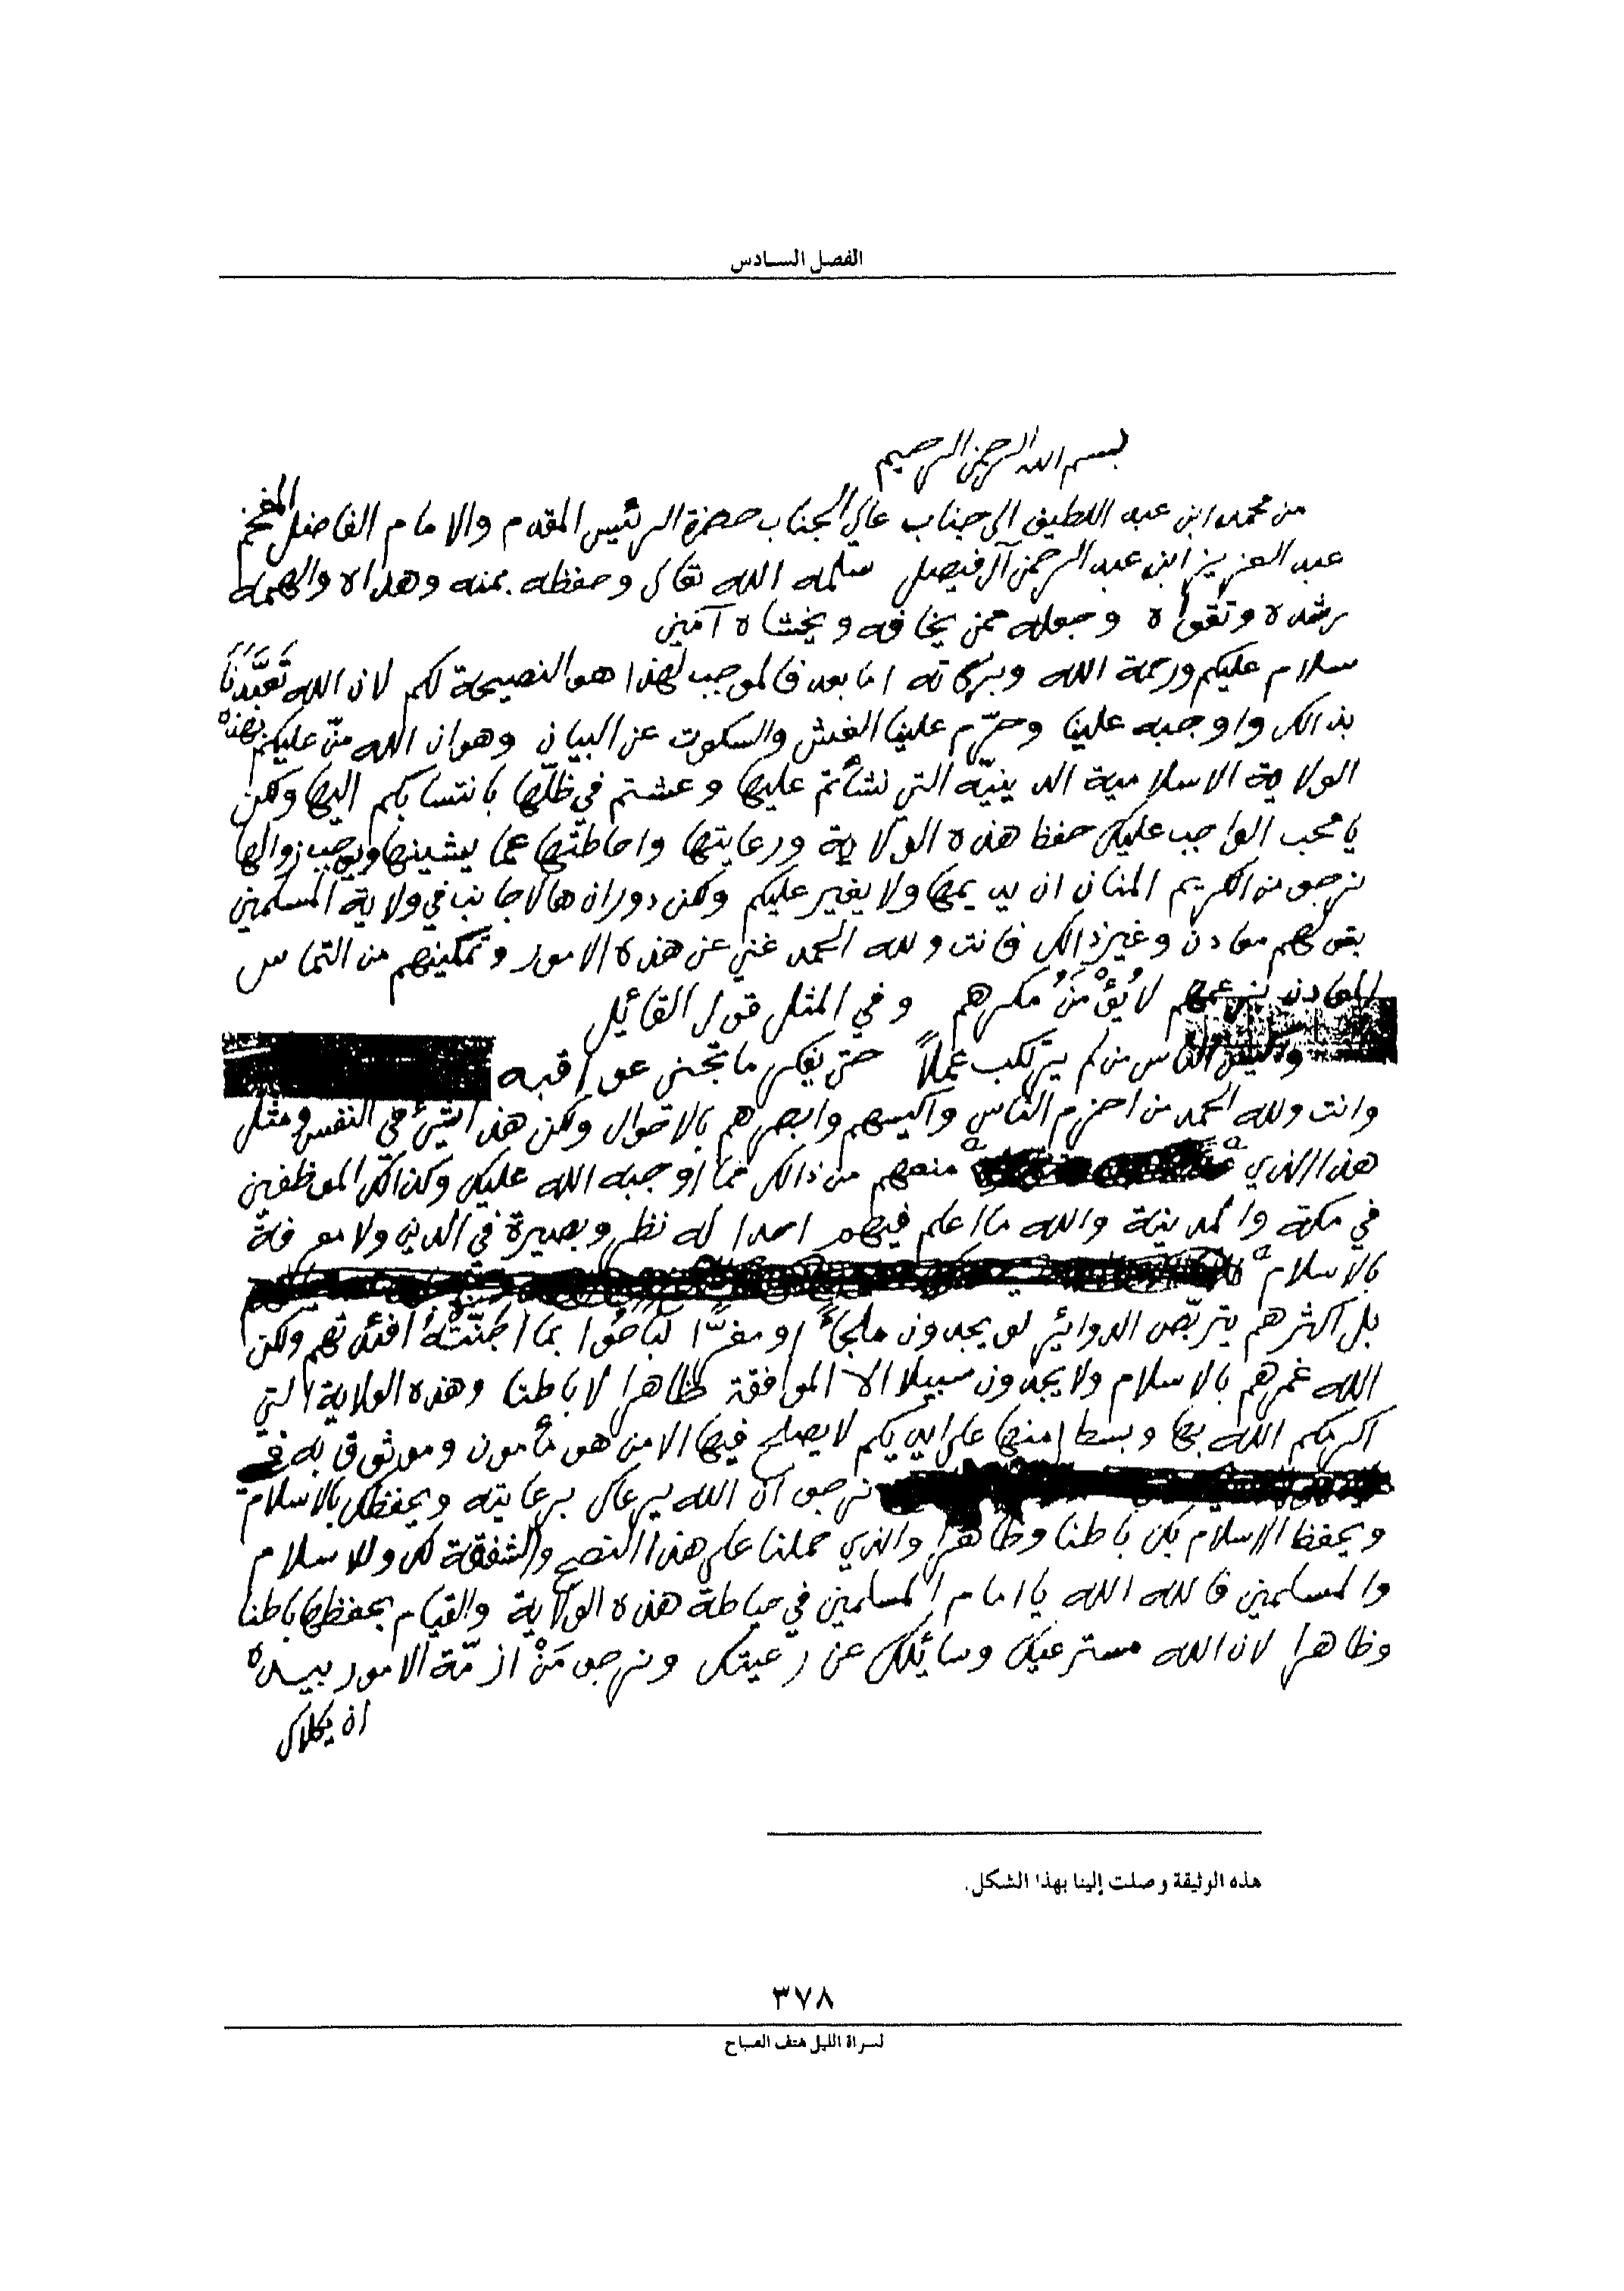 الفصل السادس
بسم الله الرحمن الرحيم
من محمد ابن عبد اللطيف الى جناب عالي الجناب حضرة الرئيس المقدم والامام الفاضل المفخم
عبد العزيز ابن عبد الرحمن آل فيصل سلمه الله تعالى وحفظه بمنه وهداه والهمه
رشده وتقواه وجعله ممن يخافه ويخشاه آمين
سلام عليكم ورحمة الله وبركاته اما بعد فالموجب لهذا هو النصيحة لكم لان الله تَعَبَّدَنَا
بذالك واوجبه علينا وحرّم علينا الغش والسكوت عن البيان وهو ان الله منّ عليكم بهذه
الولاية الاسلامية الدينيّه التي نشأتم عليها وعشتم في ظلّها بانتسابكم اليها ولكن
يا محب الواجب عليك حفظ هذه الولاية ورعايتها واحاطتها عما يشينها ويوجب زوالها
نرجو من الكريم المنان ان يديمها ولا يغير عليكم ولكن دوران هالاجانب في ولاية المسلمين
بقولهم معادن وغير ذالك فانت ولله الحمد غني عن هذه الامور وتمكينهم من التماس
المعادن بزعمهم لا يُؤْمَنُ مكرهم وفي المثل قول القائيل
الناس من لم يرتكب عملاً حتى يفكر ما تجني عواقبه
وانت ولله الحمد من احزم الناس واكيسهم وابصرهم بالاحوال ولكن هذا شيئ في النفس ومثل
هذا الذي منعهم من ذالك مما اوجبه الله عليك وكذالك الموظفين
في مكة والمدينة والله ما اعلم فيهم احدا له نظر وبصيرة في الدين ولا معرفة
بالاسلام
بل اكثرهم يتربّص الدوائر لو يجدون ملجأً او مفرًّا لباحُوا بما اجنّتْهُ افئدتهم ولكن
الله غمرهم بالاسلام ولا يجدون سبيلا الا الموافقة ظاهرا لا باطنا وهذه الولاية التي
اكرمكم الله بها وبسط امنها على ايديكم لا يصلح فيها الا من هو مأمون وموثوق به في
نرجو ان الله يرعاك برعايته ويحفظك بالاسلام
ويحفظ الاسلام بك باطنا وظاهرا والذي حملنا على هذا النصح والشفقة لك وللاسلام
والمسلمين فالله الله يا امام المسلمين في حياطة هذه الولاية والقيام بحفظها باطنا
وظاهرا لان الله مسترعيك وسائيلك عن رعيتك ونرجو مَنْ ازمّة الامور بيده
ان يكلاك
هذه الوثيقة وصلت إلينا بهذا الشكل.
٣٧٨
لسراة الليل هتف الصباح